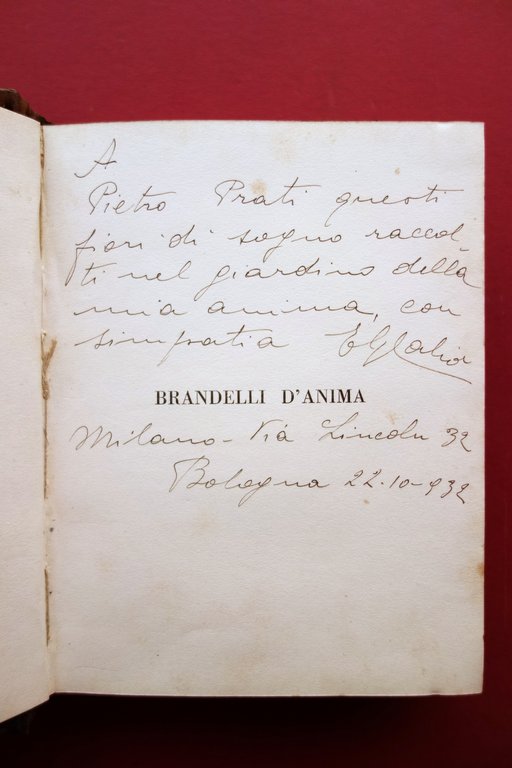 A
Pietro Prati questi
fiori di sogno raccol-
ti nel giardino della
mia anima, con
simpatia
BRANDELLI D'ANIMA
Milano - Via Lincoln 32
Bologna 22-10-932